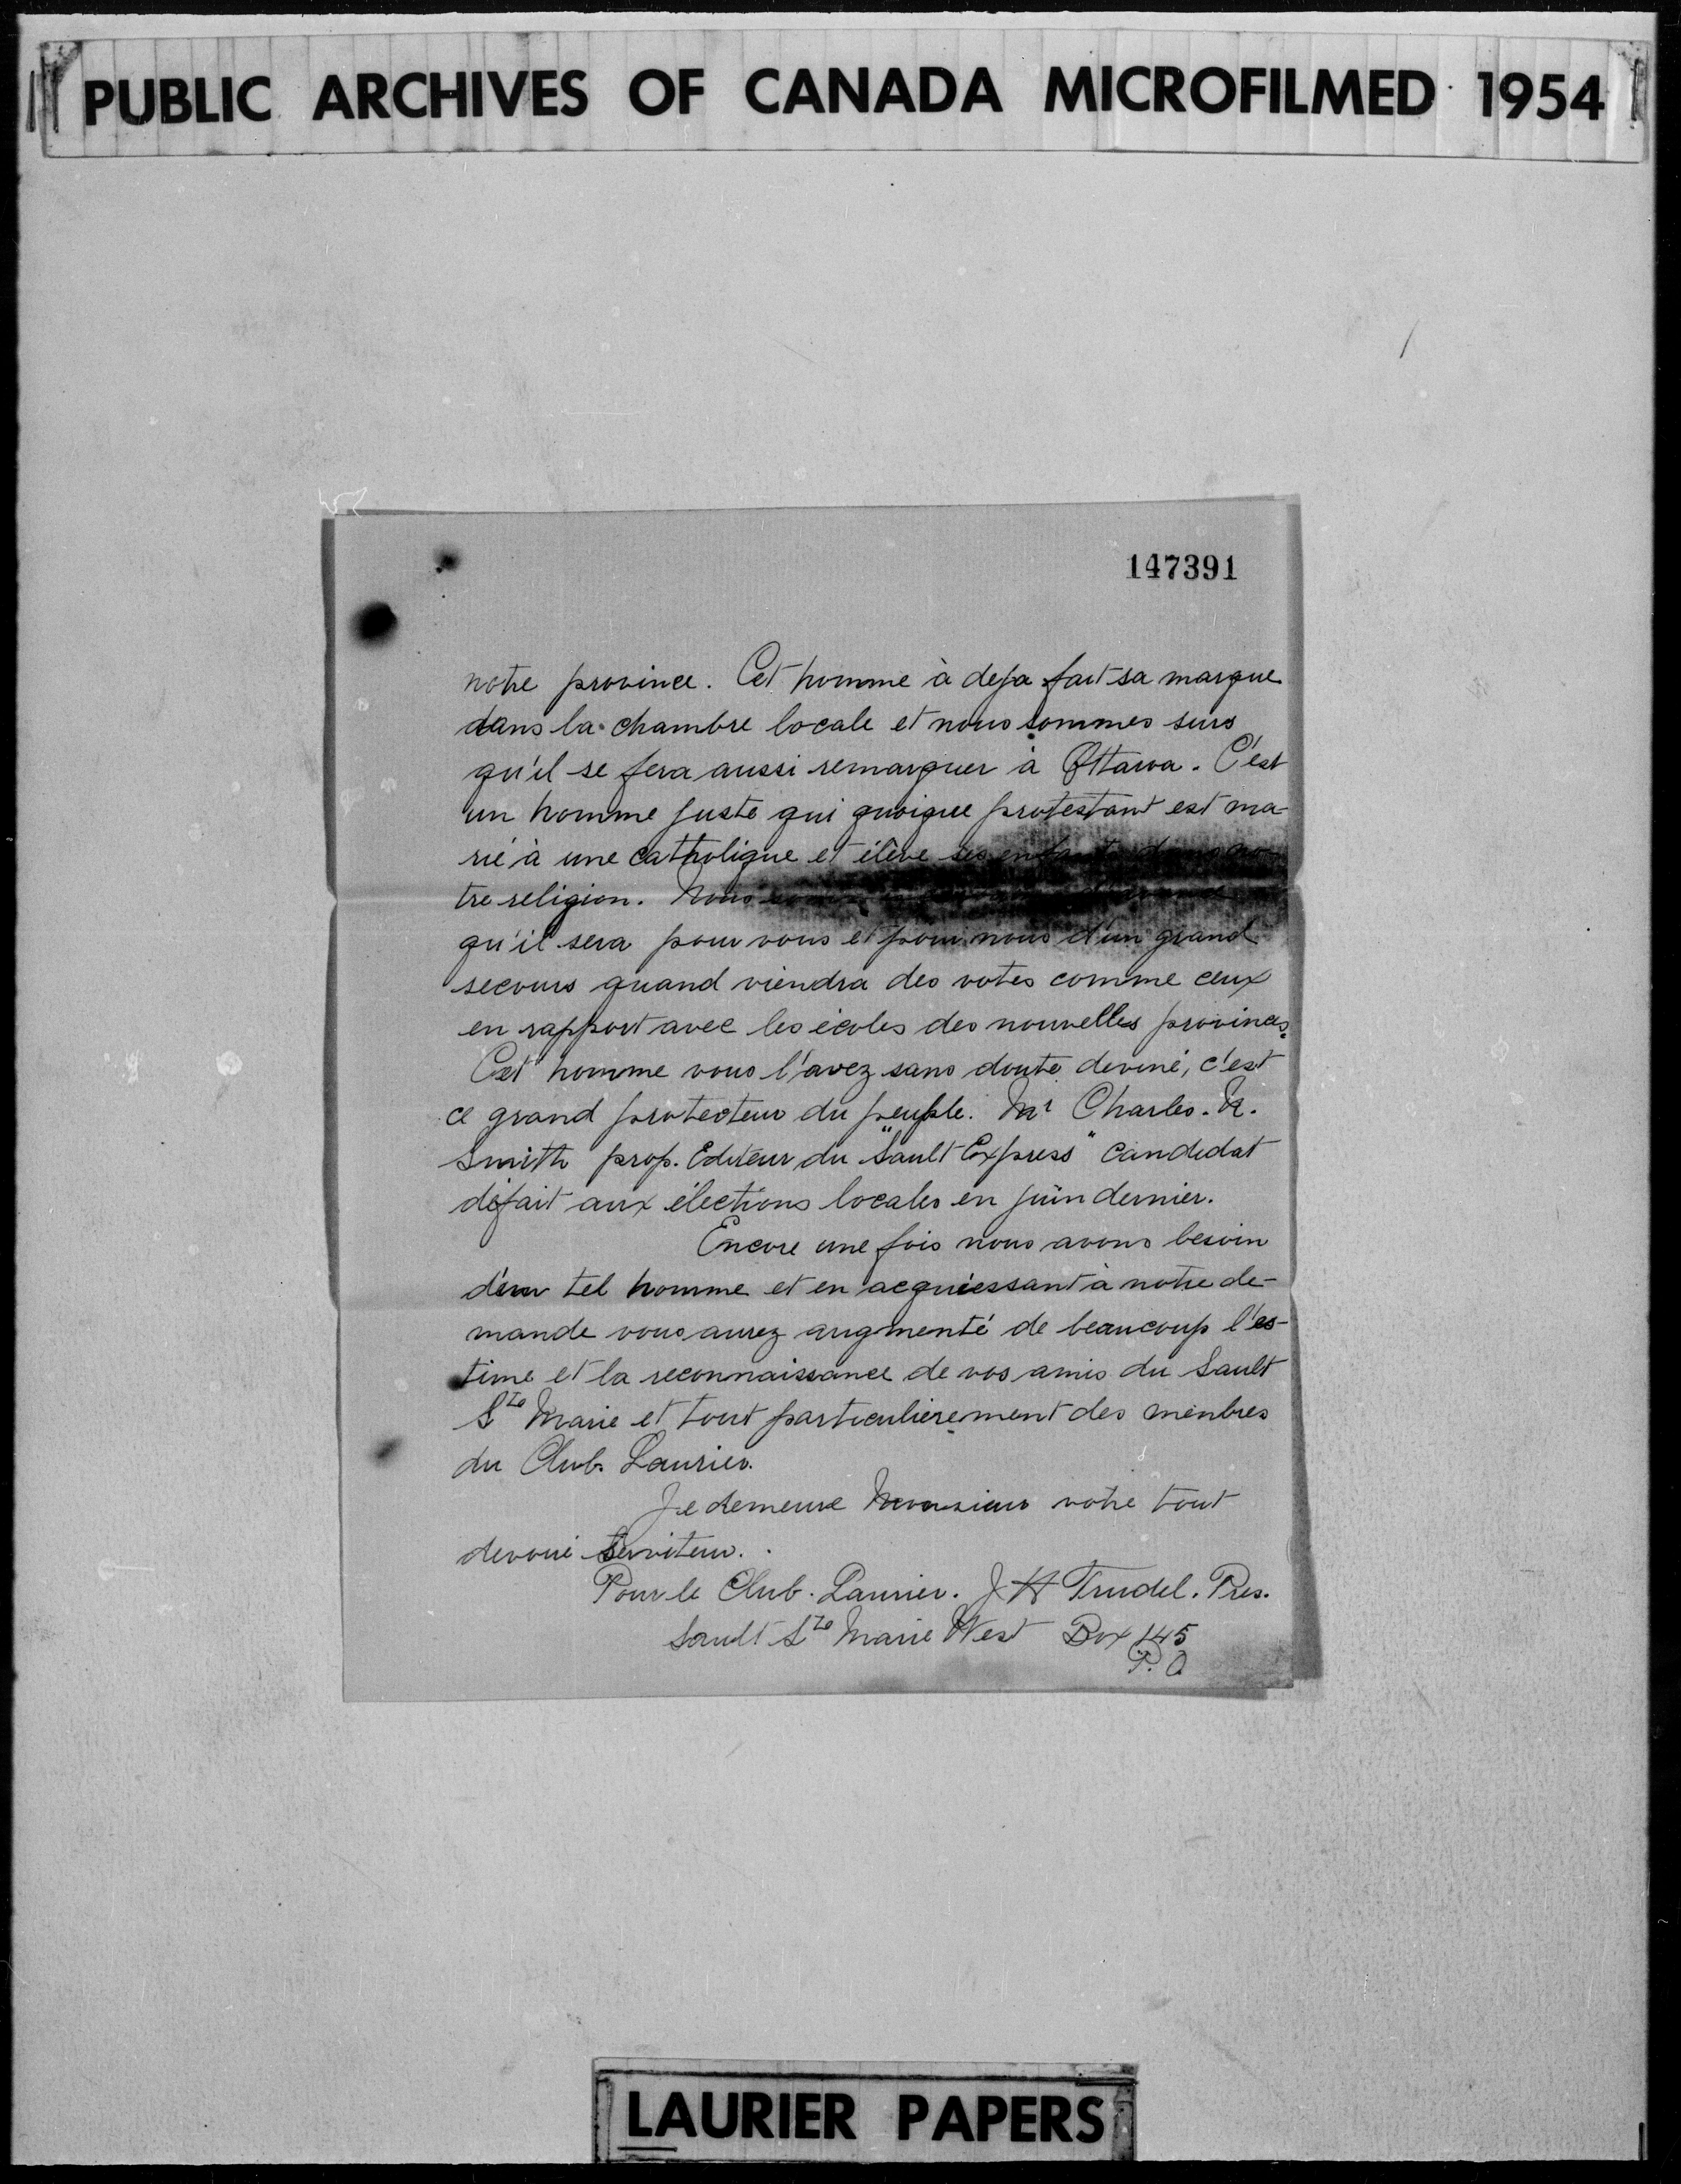 PUBLIC ARCHIVES OF CANADA MICROFILMED 1954
147391
notre province. Cet homme à deja fait sa marque
dans la chambre locale et nous sommes surs
qu'il se fera aussi remarquer à Ottawa. C'est
un homme juste qui quoique protestant est ma-
rié à une catholique et élève ses enfants dans no-
tre religion. Nous
qu'il sera pour vous et pour nous d'un grand
secours quand viendra des votes comme ceux
en rapport avec les écoles des nouvelles provinces.
Cet homme vous l'avez sans doute deviné, c'est
ce grand protecteur du peuple. Mr Charles. N.
Smith prop. Editeur du "Sault Express" candidat
défait aux élections locales en juin dernier.
Encore une fois nous avons besoin
d'un tel homme et en acquiessant à notre de-
mande vous aurez augmenté de beaucoup l'es-
time et la reconnaissance de vos amis du Sault
Ste Marie et tout particulierement des menbres
du Club Laurier.
Je demeure Monsieur votre tout
devoué Serviteur.
Pour le Club. Laurier. J H Trudel. Pres.
Sault Ste Marie West Box 145
P. O
LAURIER PAPERS